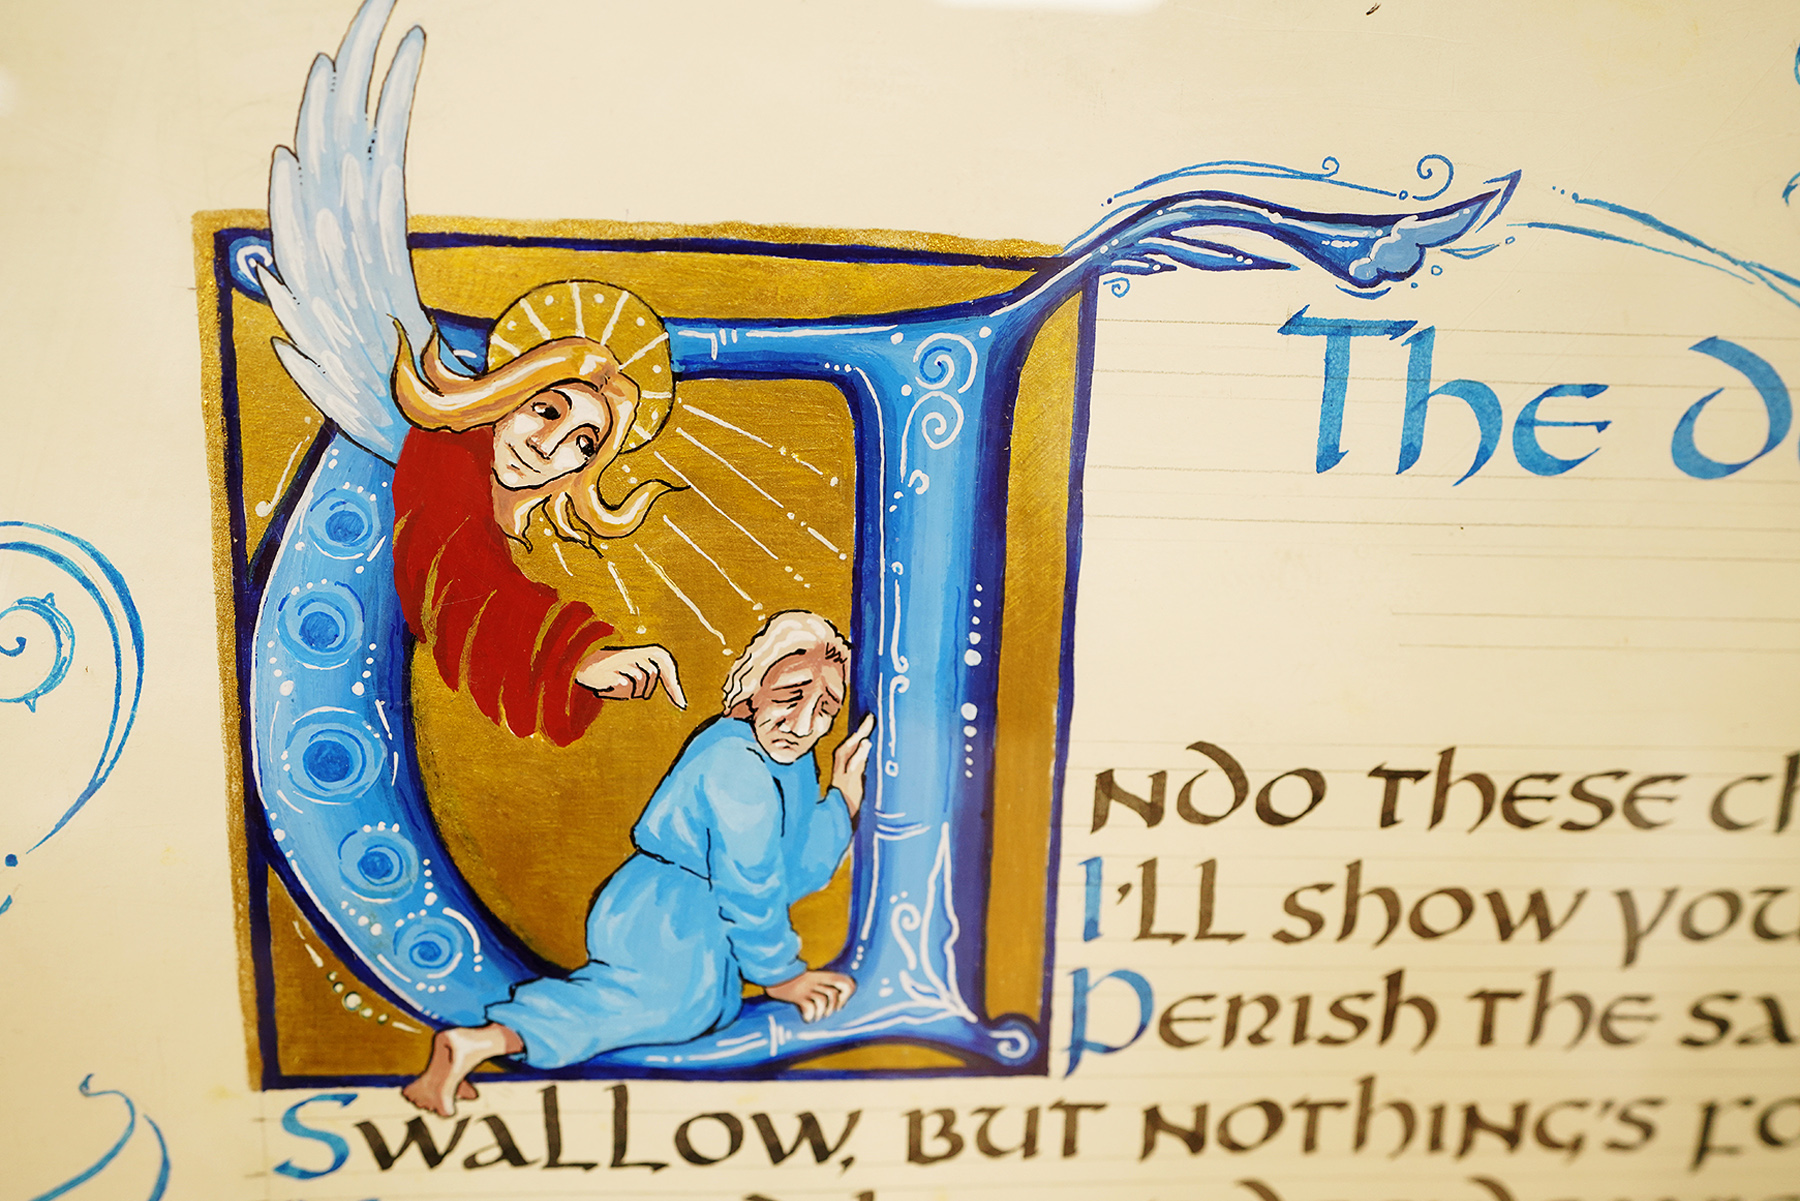 The d
Undo these ch
I'll show you
Perish the sa
Swallow, but nothing's fo